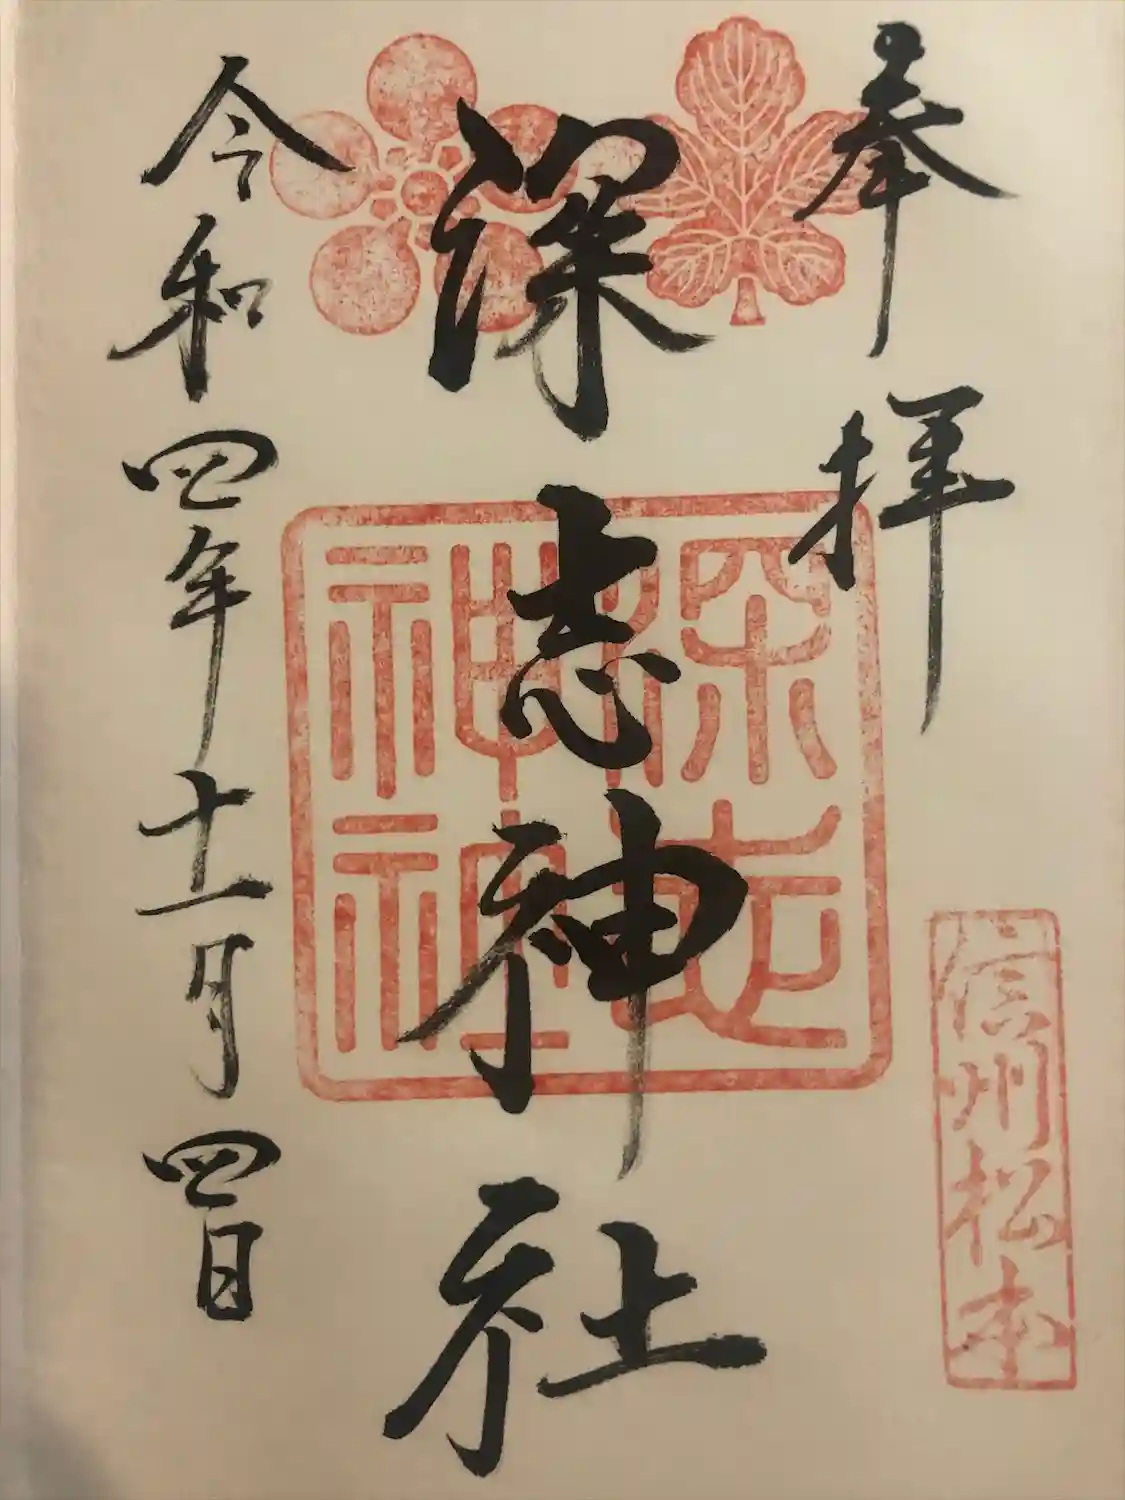 奉拝
信州松本
深志神社
深志
神社
令和四年十一月四日